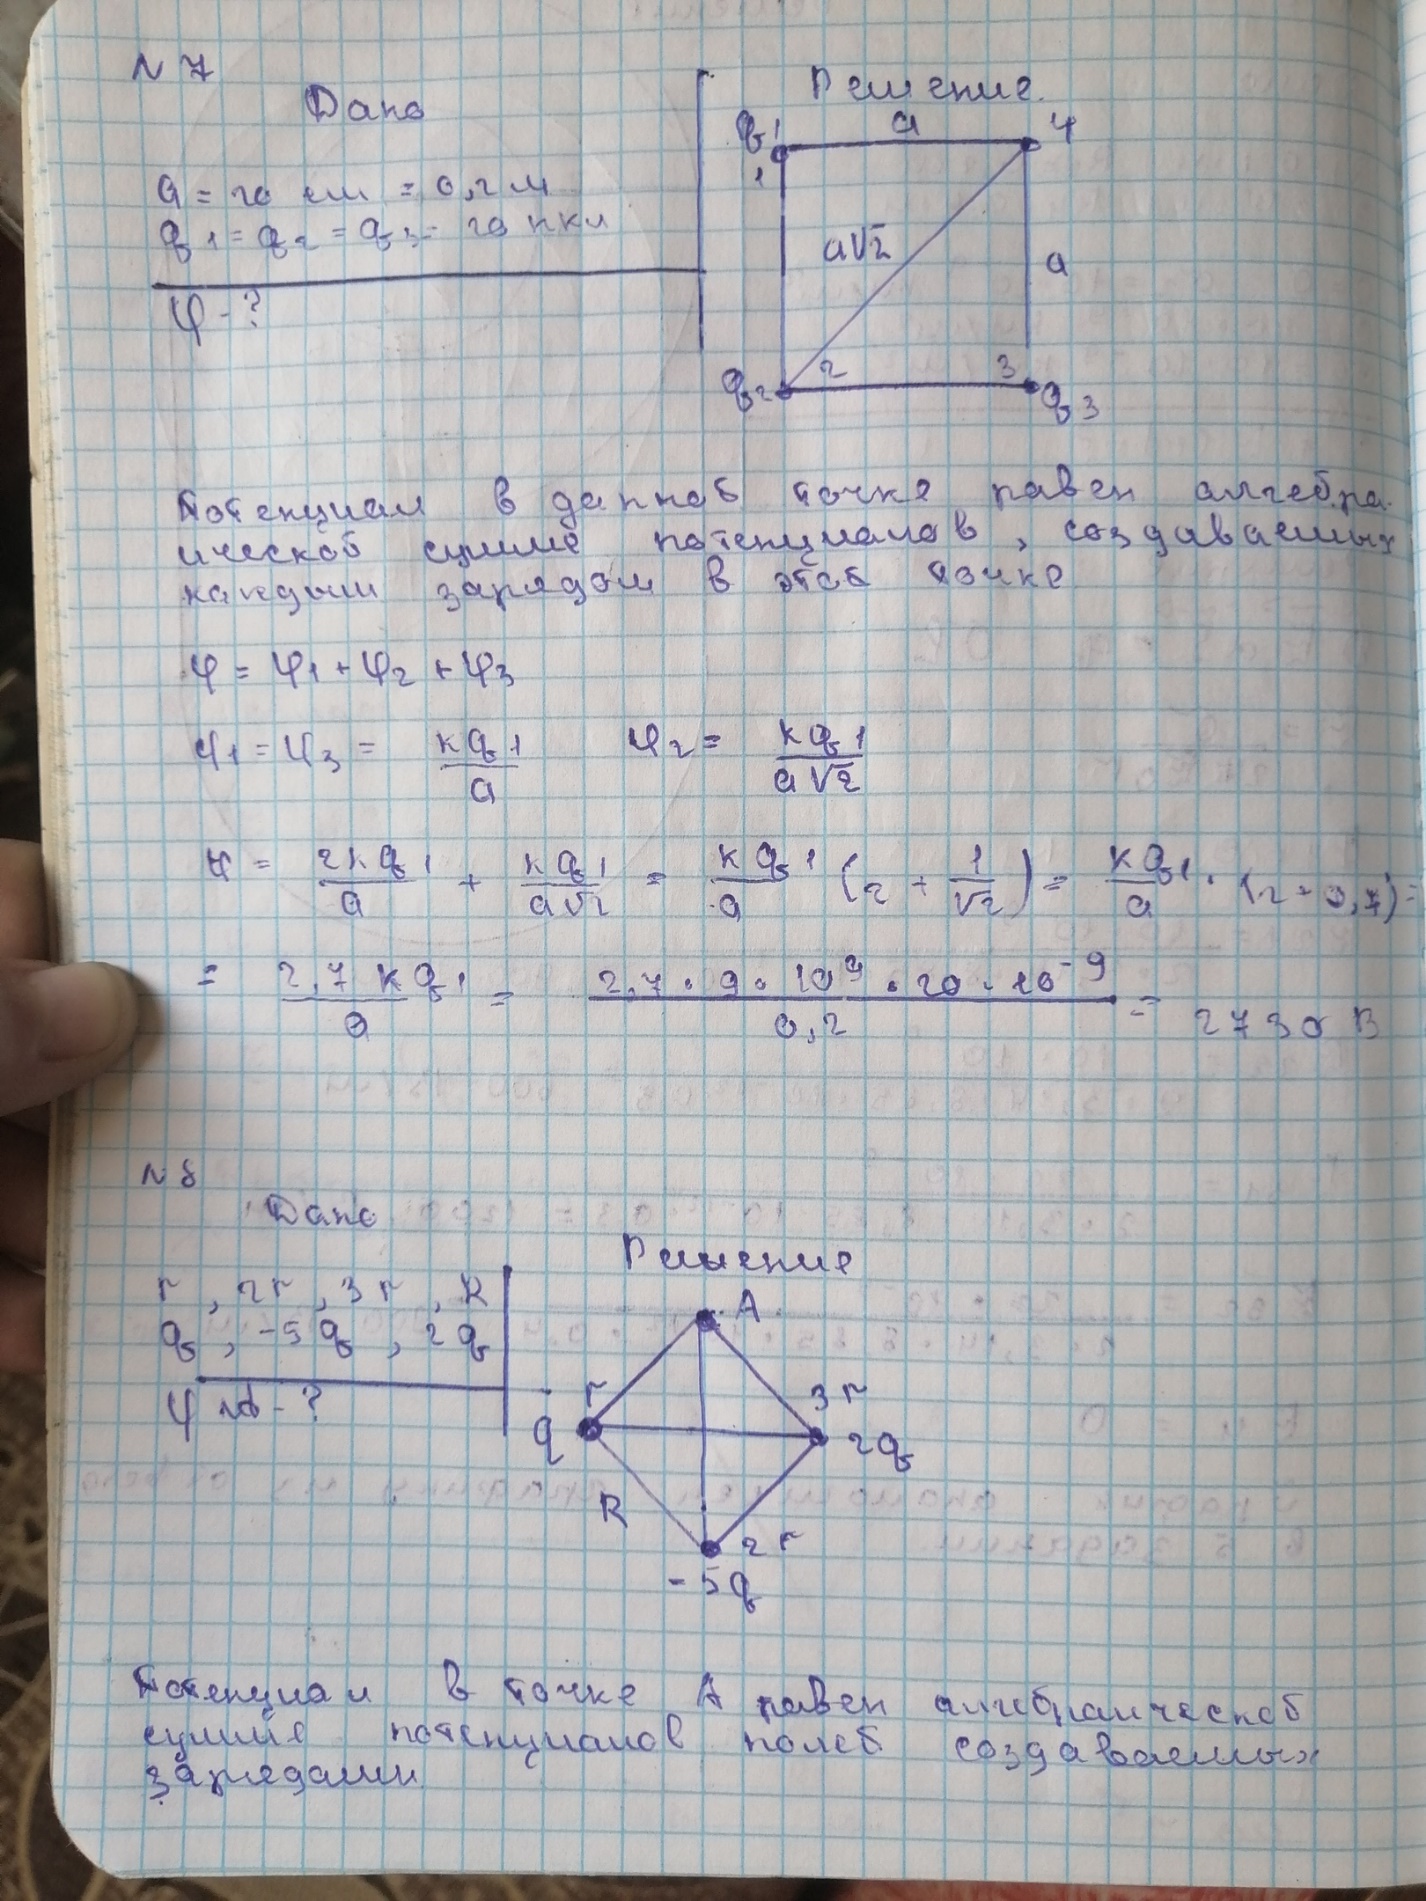 N 7
Дано
Решение.
a = 20 см = 0,2 м
q1 = q2 = q3 = 20 нкл
φ - ?
q1 a 4
1
a√2 a
q2 2 3 q3
Потенциал в данной точке равен алгебра-
ической сумме потенциалов, создаваемых
каждым зарядом в этой точке
φ = φ1 + φ2 + φ3
φ1 = φ3 = kq1/a φ2 = kq1/a√2
φ = 2kq1/a + kq1/a√2 = kq1/a (2 + 1/√2) = kq1/a · (2 + 0,7) =
= 2,7 kq1/a = 2,7 · 9 · 10⁹ · 20 · 10⁻⁹/0,2 = 2730 В
N 8
Дано
Решение
r, 2r, 3r, R
q, -5q, 2q
φ - ?
A
r 3r
q 2q
R
2r
-5q
Потенциал в точке А равен алгебраической
сумме потенциалов полей создаваемых
зарядами